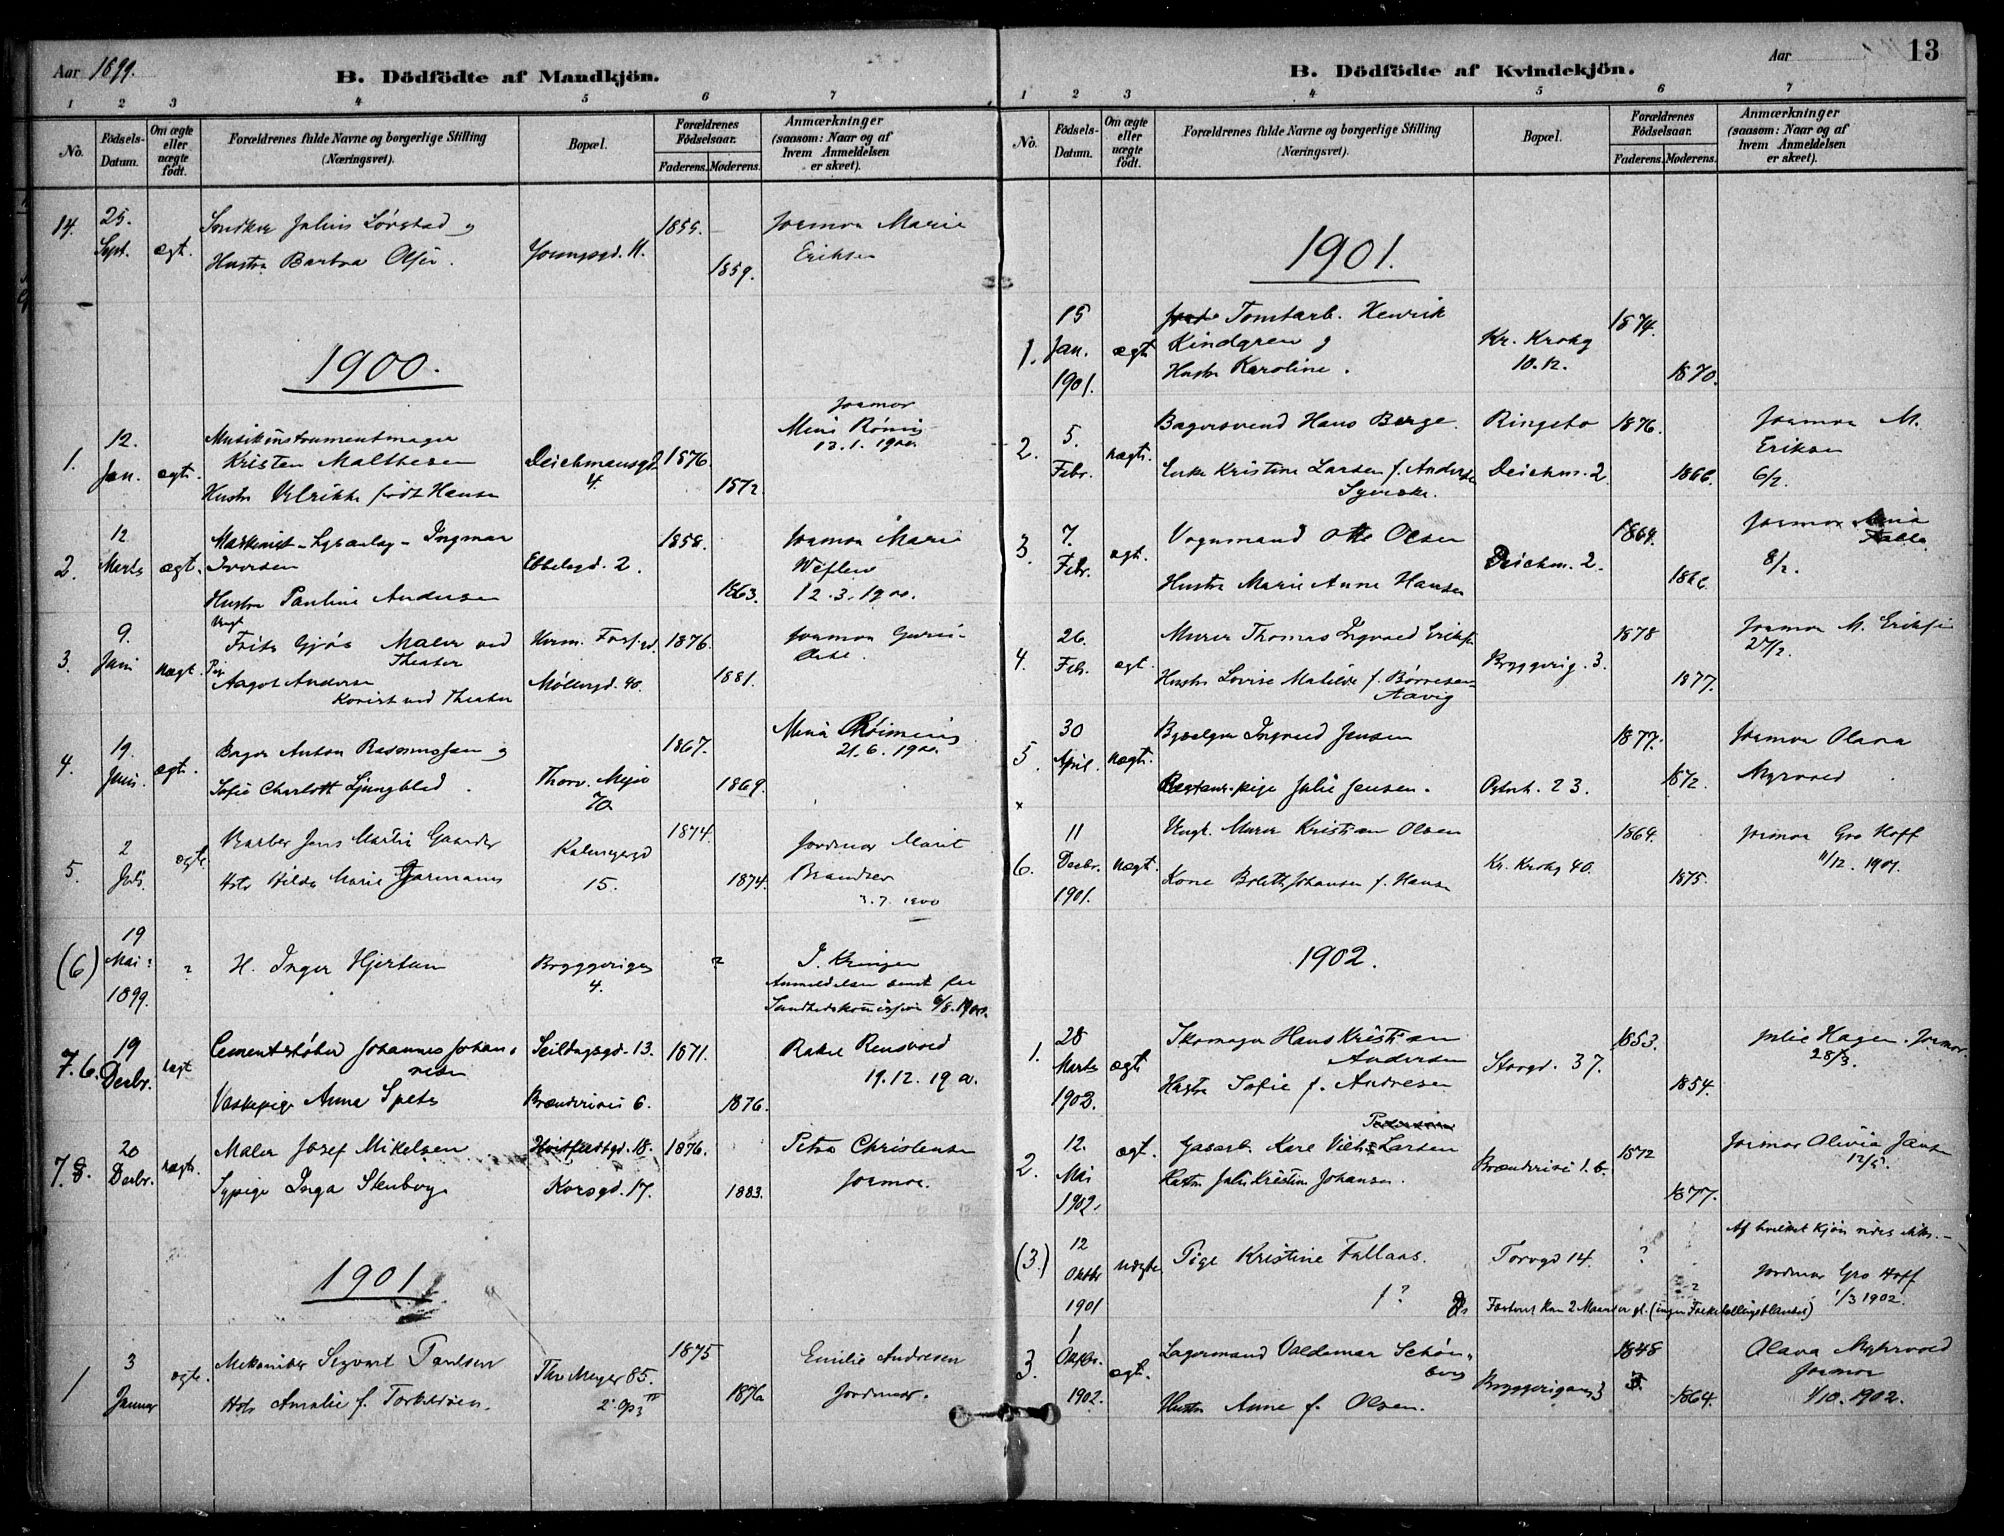 Aar 1899.
B. Dödfödte af Mandkjön.
1 2 3 4 5 6 7
No.
Födsels-Datum.
Om ægte eller uægte födt.
Forældrenes fulde Navne og borgerlige Stilling (Næringsvei).
Bopæl.
Forældrenes Födselsaar.
Faderens. Moderens.
Anmærkninger (saasom: Naar og af hvem Anmeldelsen er skeet).
14. 25. Sept. ægt.
Julius Lörstad og
Hustru Barbra Olsen.
Youngsgd. 11.
1855.
1859.
Jormor Marie
Eriksen
1900.
1. 12. Jan. ægt.
Musikinstrumentmager
Kristen Malthesen
Hustru Ulrikke født Hansen
Deichmansgd.
4.
1876.
1872.
Jormor
13.1.1900
2. 12 Marts ægt.
Maskinist Ingmar
Iversen
Hustru Pauline Andersen
Ebbelsgd. 2.
1858.
1863.
Jormor Marie
12.3.1900.
3. 9. Juni uægt.
Ungk. Frits Gjös Maler ved
Theater
Pige Aagot Andersen
Korist ved Theater
Møllergd. 40.
1876.
1881.
Jormor
4. 19. Juni ægt.
Bager Anton Rasmussen og
Sofie Charlotte Ljungblad.
Thorv. Meje
70
1867.
1869.
21.6.1900.
5. 2 Juli ægte
Barber Jens Martin Gaarder
Hstr Hilda Marie Jarmann
15.
1874.
1874.
Jordmor Marit
Brandser
3.7.1900
(6) 19 Mai 1899. ?
H. Inger Hjertum
Bryggerigd
4.
?
J. Kringen
Anmeldelsen sendt fra
Sundhedskommissionen 6/8.1900.
7.6. 19 Decbr. uægt
Cementstøber Johannes Johannesen
Vaskepige Anna Spets
Seildugsgd. 13.
Brænderivei 6.
1871.
1876.
Rakel Rensvold
19.12.1900.
7.8. 20 Decbr. uægte
Maler Josef Mikelsen
Sypige Inga Stenborg
Hvitfeldtsgd. 18.
Korsgd. 17.
1876.
1883.
Petra Christensen
Jormor.
1901.
1 3 Januar ægte.
Mekaniker Sigvart Paulsen
Hstr Amalie f. Torkildsen.
Thv Meyer 85.
1875
1876
Emilie Andresen
Jordmor.
Aar
13
B. Dödfödte af Kvindekjön.
1 2 3 4 5 6 7
No.
Födsels-Datum.
Om ægte eller uægte födt.
Forældrenes fulde Navne og borgerlige Stilling (Næringsvei).
Bopæl.
Forældrenes Födselsaar.
Faderens. Moderens.
Anmærkninger (saasom: Naar og af hvem Anmeldelsen er skeet).
1901.
1. 15 Jan. 1901. ægt
Tomtarb. Henrik
Kindgren og
Hustru Karoline.
Kr. Krohg
10.
1874.
1870.
2. 5. Febr. uægt.
Bagersvend Hans Berge.
Enke Kristine Larsen f. Andersen
Ringsbo
Deichm. 2.
1876.
1866.
Jormor M.
Eriksen
6/2
3. 7. Febr. ægt.
Vognmand Otto Olsen
Hustru Marie Anne Hansen
Deichm. 2.
1864.
1866.
Jormor
8/2.
4. 26 Febr. ægt.
Murer Thomas Ingvald Eriksen
Hustru Lovise Matilde f. Børresen
Aavig
Bryggerig. 3.
1878
1877.
Jormor M. Eriksen
27/2
5. 30 April. uægt.
Ingvald Jensen
Restaur. pige Julie Jensen.
23.
1877.
1872.
Jormor Olava
Myrvold
×
6. 11 Decbr. 1901. uægt.
Ungk. Murer Kristian Olsen
Kone Boleth Johansen f. Hansen
Kr. Krohg 40.
1864.
1875.
Jormor Gro Hoff
11/12. 1901.
1902.
1. 28 Marts 1902. ægt
Skomager Hans Kristian
Andersen
Hustru Sofie f. Andresen
Storgd. 37.
1853.
1854.
Julie Hagen. Jormor.
28/3.
2. 12. Mai 1902. ægt.
Gasarb. Karl Vilh. Larsen
Hustru Julie Kristine Johansen.
Brænderivei 1.b.
1872
1877.
Jormor Olivia Jansen
12/5.
(3.) 12 Oktbr 1901 uægte
Pige Kristine Fallaas.
f ?
Torvgd 14.
?
?
Af hvilket Kjøn vides ikke.
Jordmor Gro Hoff
1/3 1902.
Fosteret kun 2 Maaneder gl. (ingen Folketællingsblanket)
3. 1 Oktbr. 1902. ægt.
Lagermand Valdemar Schönberg
Hustru Anne f. Olsen.
Bryggerigang 3
1848
1864.
Olava Myhrvold
Jormor
1/10.1902.